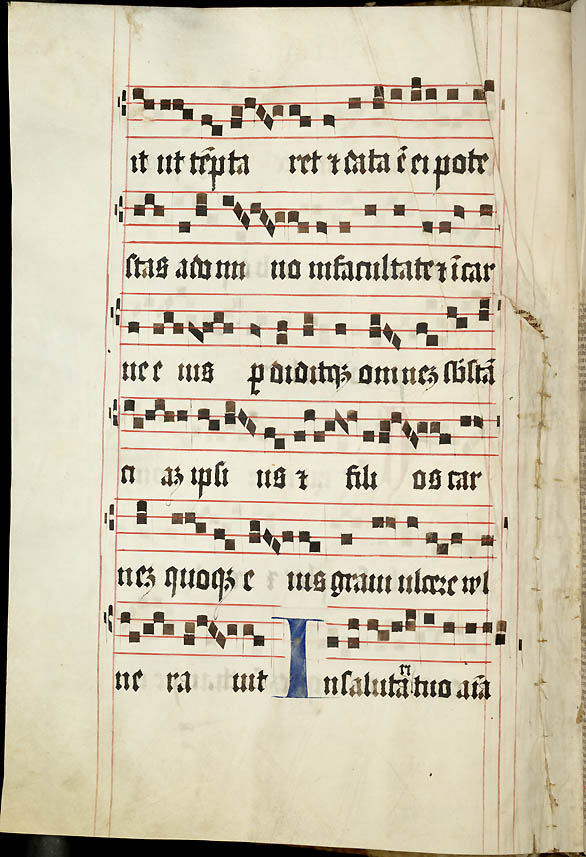 it ut tēpta ret ⁊ data ē ei pote
stas a dō mi no in facultate ⁊ ī car
ne e ius ꝑ didit qꝫ om neꝫ sb̄stā
ci aꝫ ipsi us ⁊ fili os car
neꝫ quoqꝫ e ius graui ulcere wl
ne ra uit In saluta ri tuo aīa